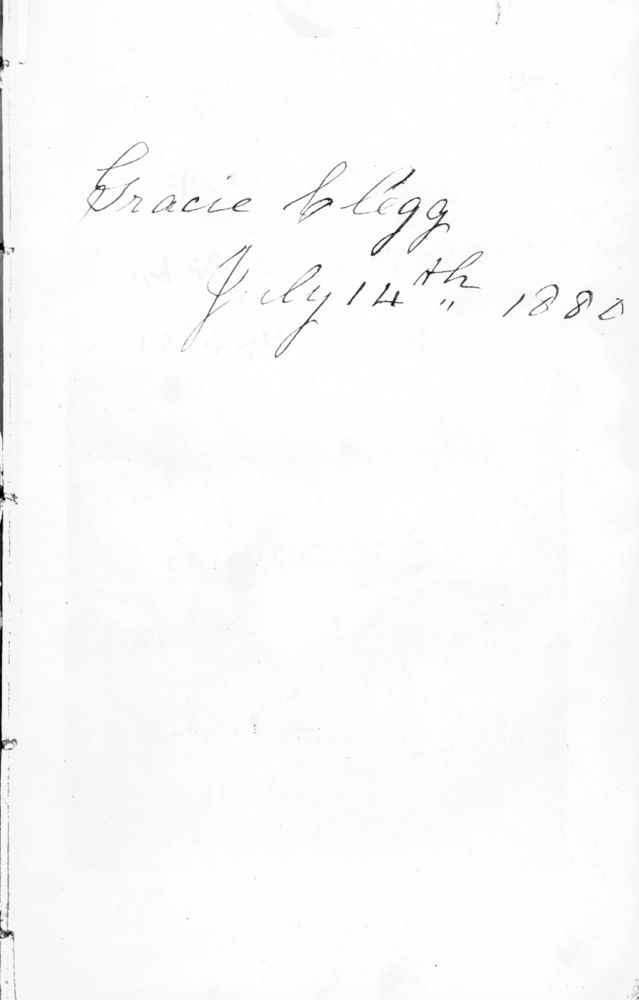 Gracie Clegg
July 14th 1880